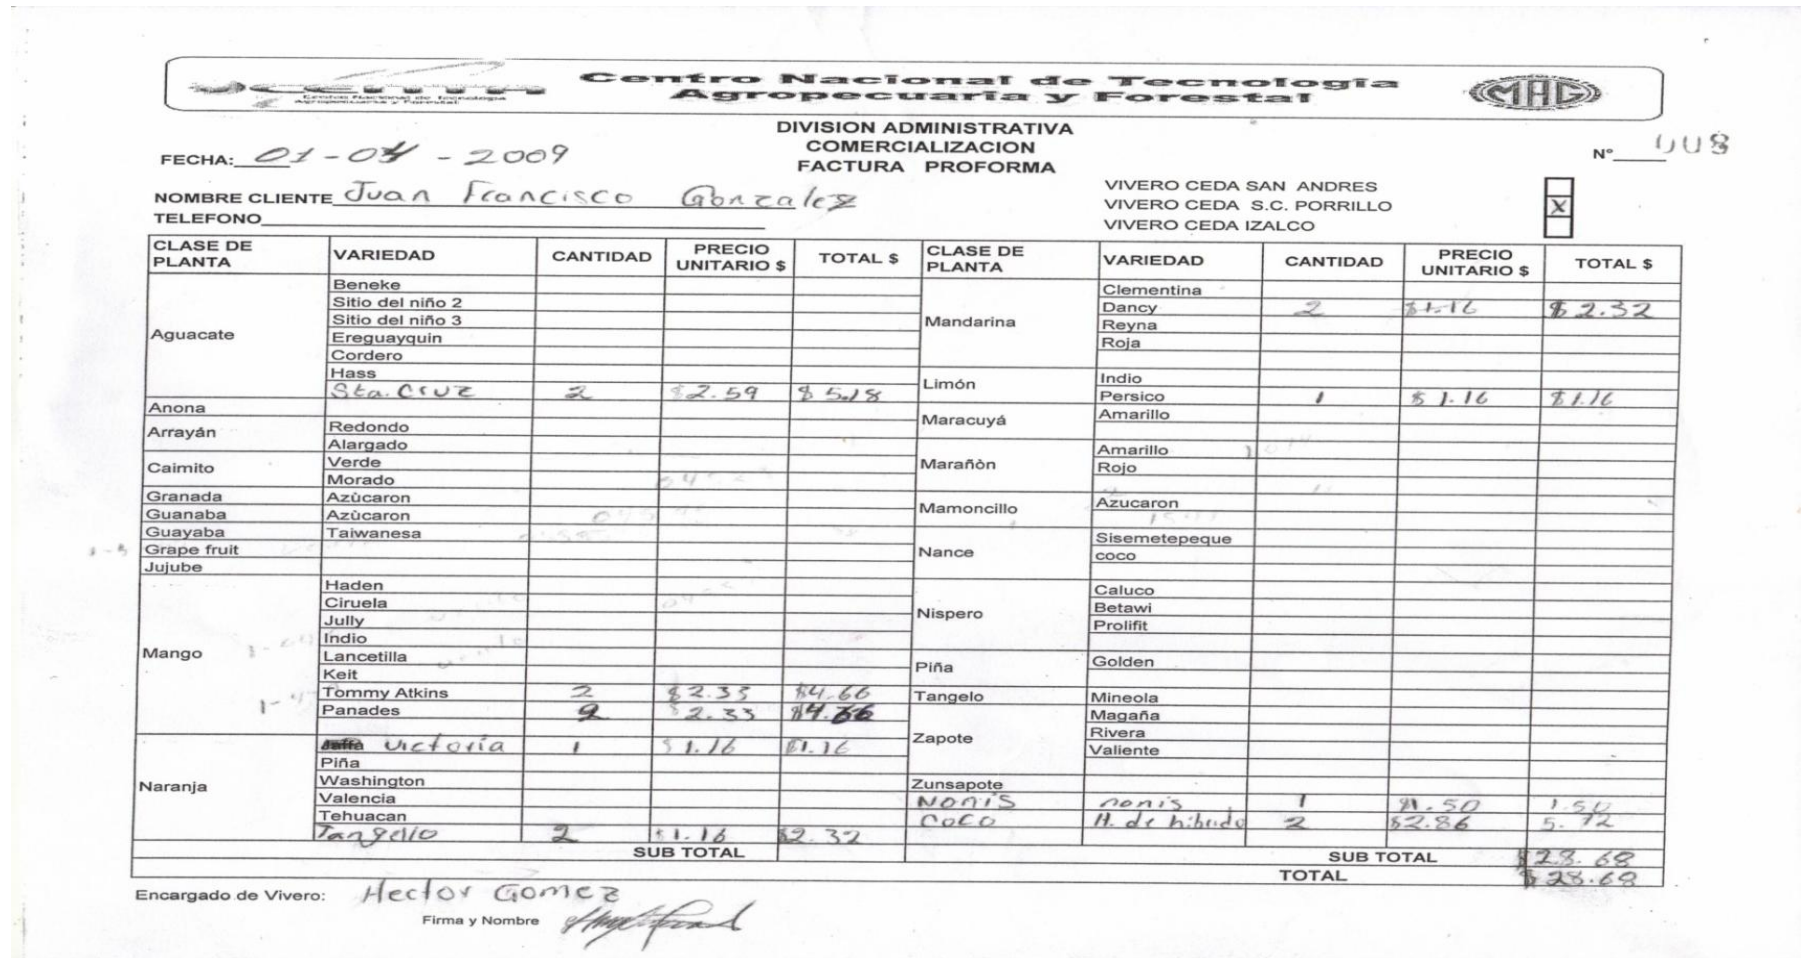 Centro Nacional de Tecnología
Agropecuaria y Forestal
Centro Nacional de Tecnología
Agropecuaria y Forestal
MAG
DIVISION ADMINISTRATIVA
COMERCIALIZACION
FACTURA PROFORMA
FECHA: 01-04-2009
N°
NOMBRE CLIENTE Juan Francisco Gonzalez
TELEFONO
VIVERO CEDA SAN ANDRES
VIVERO CEDA S.C. PORRILLO X
VIVERO CEDA IZALCO
CLASE DE PLANTA VARIEDAD CANTIDAD PRECIO UNITARIO $ TOTAL $
Aguacate
Beneke
Sitio del niño 2
Sitio del niño 3
Ereguayquin
Cordero
Hass
Sta. Cruz 2 $2.59 $5.18
Anona
Arrayán
Redondo
Alargado
Caimito
Verde
Morado
Granada Azùcaron
Guanaba Azùcaron
Guayaba Taiwanesa
Grape fruit
Jujube
Mango
Haden
Ciruela
Jully
Indio
Lancetilla
Keit
Tommy Atkins 2 $2.33 $4.66
Panades 2 $2.33 $4.66
Naranja
Jaffa Victoria 1 $1.16 $1.16
Piña
Washington
Valencia
Tehuacan
Tangello 2 $1.16 $2.32
SUB TOTAL
CLASE DE PLANTA VARIEDAD CANTIDAD PRECIO UNITARIO $ TOTAL $
Mandarina
Clementina
Dancy 2 $1.16 $2.32
Reyna
Roja
Limón
Indio
Persico 1 $1.16 $1.16
Maracuyá Amarillo
Marañòn
Amarillo
Rojo
Mamoncillo Azucaron
Nance
Sisemetepeque
coco
Nispero
Caluco
Betawi
Prolifit
Piña Golden
Tangelo Mineola
Zapote
Magaña
Rivera
Valiente
Zunsapote
Nonis nonis 1 $1.50 1.50
Coco H. de hibrido 2 $2.86 5.72
SUB TOTAL $28.68
TOTAL $28.68
Encargado de Vivero: Hector Gomez
Firma y Nombre